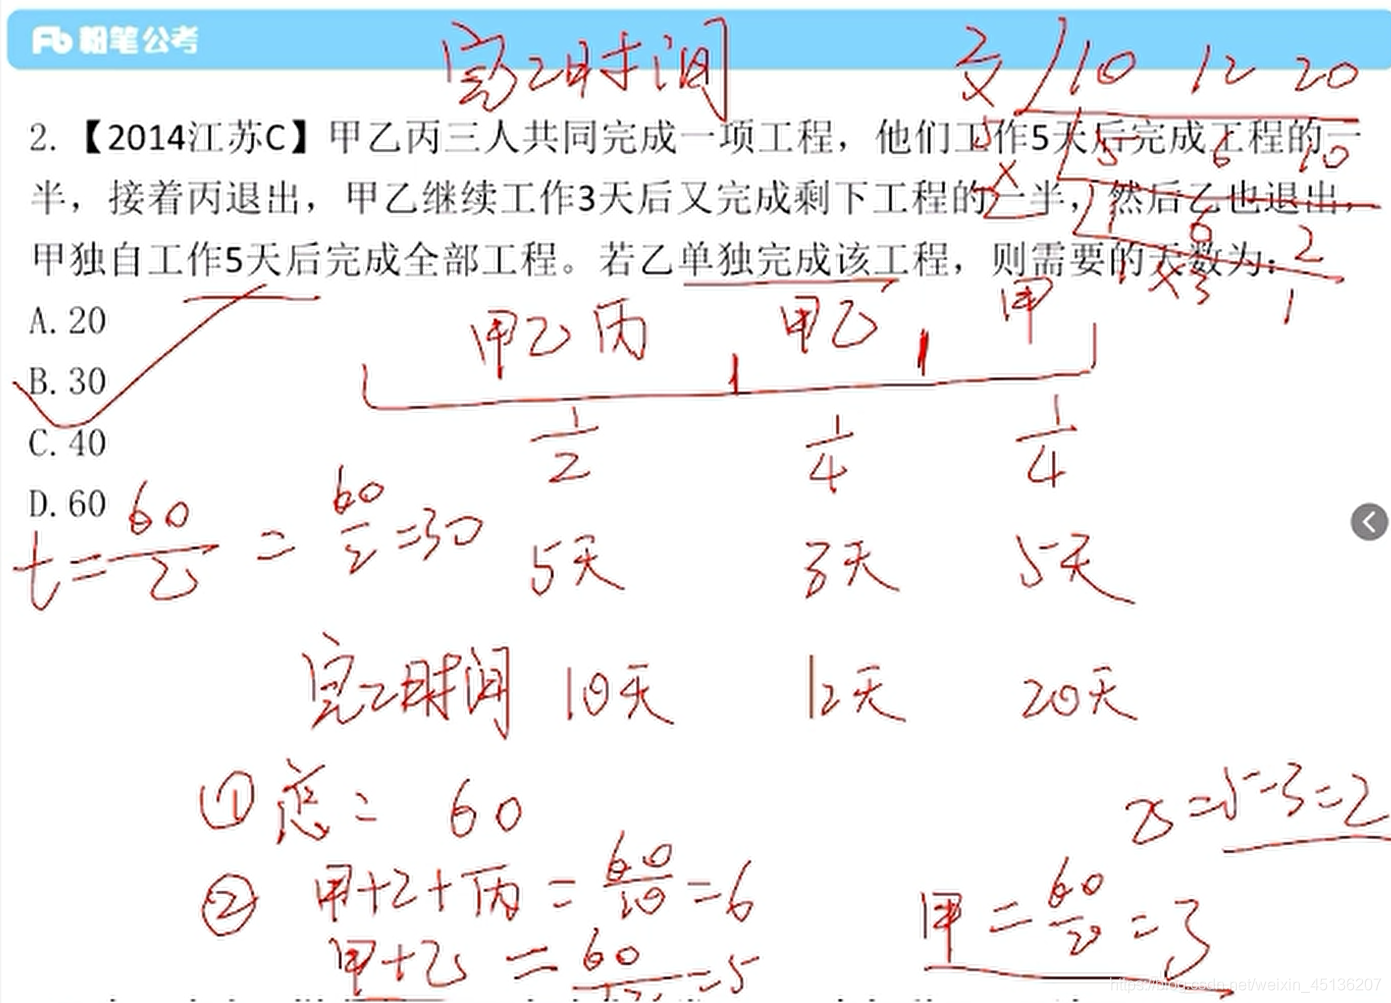 粉笔公考
完工时间
2 / 10 12 20
2.【2014江苏C】甲乙丙三人共同完成一项工程，他们工作5天后完成工程的一
5 6 10
半，接着丙退出，甲乙继续工作3天后又完成剩下工程的一半，然后乙也退出，
1 6 2
甲独自工作5天后完成全部工程。若乙单独完成该工程，则需要的天数为：
A.20
甲乙丙 甲乙 甲
B.30
C.40
1/2 1/4 1/4
D.60
t=60/乙=60/2=30
5天 3天 5天
完工时间 10天 12天 20天
①总= 60
乙=5-3=2
②甲+乙+丙=60/10=6
甲=60/20=3
甲+乙=60/12=5
https://blog.csdn.net/weixin_45136207